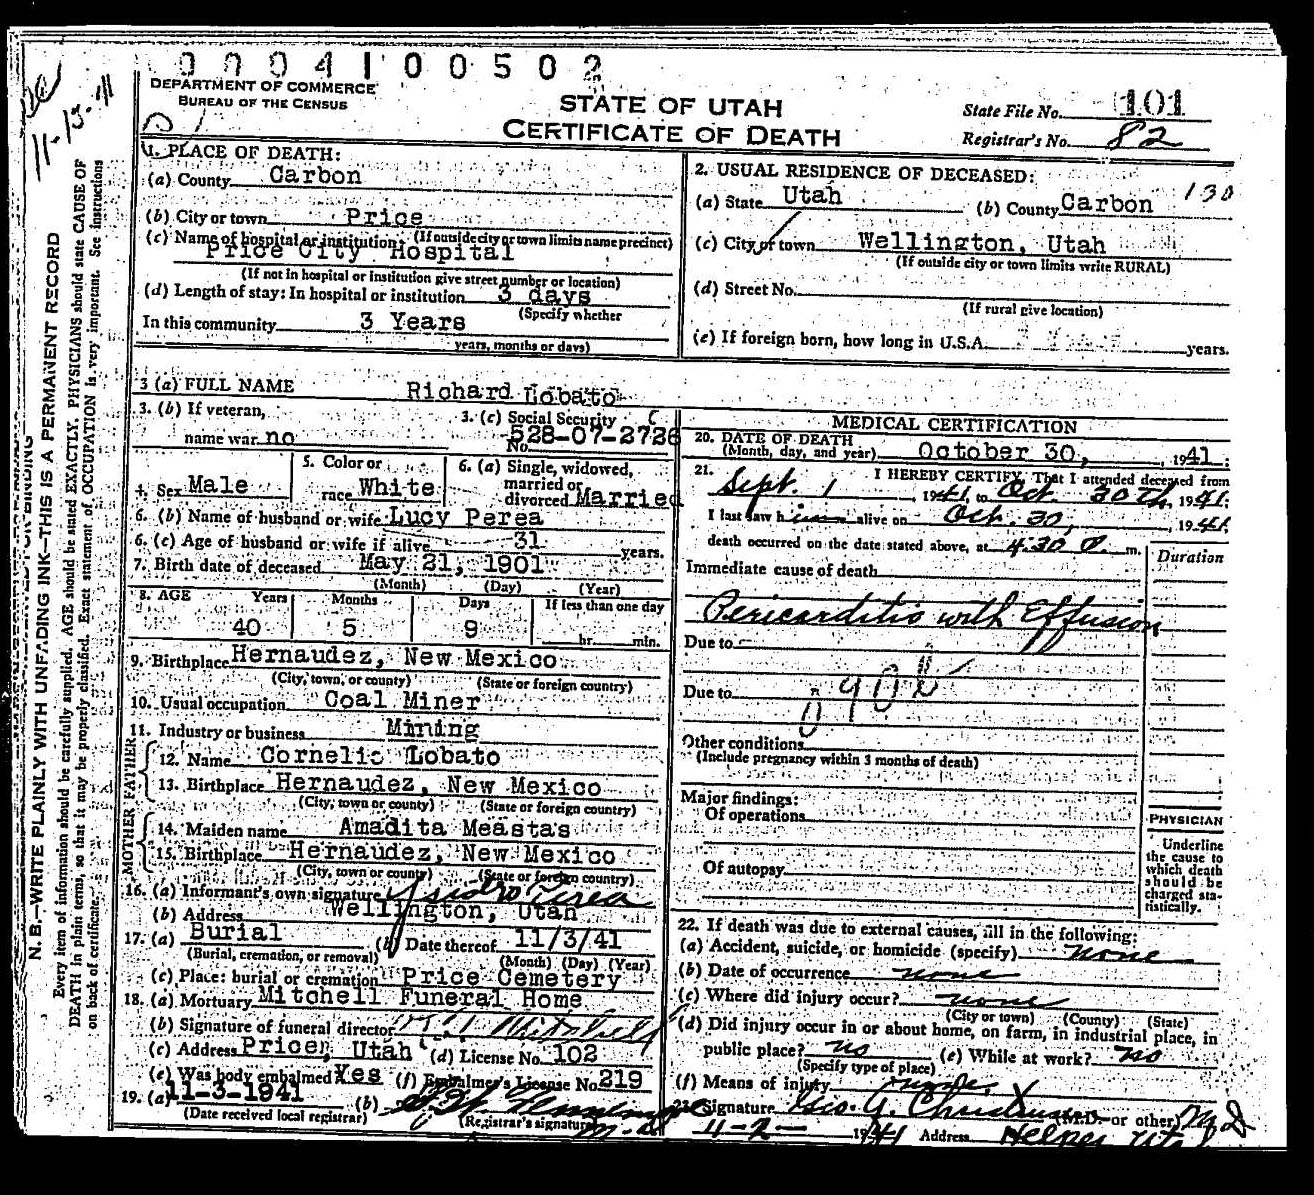 0004100502
DEPARTMENT OF COMMERCE
BUREAU OF THE CENSUS
STATE OF UTAH
CERTIFICATE OF DEATH
State File No. 101
Registrar's No. 82
11-13-41
N. B.—WRITE PLAINLY WITH UNFADING INK—THIS IS A PERMANENT RECORD
Every item of information should be carefully supplied. AGE should be stated EXACTLY. PHYSICIANS should state CAUSE OF
DEATH in plain terms, so that it may be properly classified. Exact statement of OCCUPATION is very important. See instructions
on back of certificate.
1. PLACE OF DEATH:
(a) County Carbon
(b) City or town Price
(c) Name of hospital or institution: (If outside city or town limits name precinct)
Price City Hospital
(If not in hospital or institution give street number or location)
(d) Length of stay: In hospital or institution 3 days
(Specify whether
In this community 3 Years
years, months or days)
2. USUAL RESIDENCE OF DECEASED:
130
(a) State Utah (b) County Carbon
(c) City or town Wellington, Utah
(If outside city or town limits write RURAL)
(d) Street No.
(If rural give location)
(e) If foreign born, how long in U.S.A. years.
3 (a) FULL NAME Richard Lobato
3. (b) If veteran,
name war no
3. (c) Social Security
No. 528-07-2726
4. Sex Male
5. Color or
race White
6. (a) Single, widowed,
married or
divorced Married
6. (b) Name of husband or wife Lucy Perea
6. (c) Age of husband or wife if alive 31 years.
7. Birth date of deceased May 21, 1901
(Month) (Day) (Year)
8. AGE Years Months Days If less than one day
40 5 9 hr. min.
9. Birthplace Hernaudez, New Mexico
(City, town, or county) (State or foreign country)
10. Usual occupation Coal Miner
11. Industry or business Mining
FATHER
12. Name Cornelio Lobato
13. Birthplace Hernaudez, New Mexico
(City, town or county) (State or foreign country)
MOTHER
14. Maiden name Amadita Meastas
15. Birthplace Hernaudez, New Mexico
(City, town or county) (State or foreign country)
16. (a) Informant's own signature Ysidro Perea
(b) Address Wellington, Utah
17. (a) Burial (b) Date thereof 11/3/41
(Burial, cremation, or removal) (Month) (Day) (Year)
(c) Place: burial or cremation Price Cemetery
18. (a) Mortuary Mitchell Funeral Home
(b) Signature of funeral director Mitchell
(c) Address Price, Utah (d) License No. 102
(e) Was body embalmed Yes (f) Embalmer's License No. 219
19. (a) 11-3-1941 (b)
(Date received local registrar) (Registrar's signature)
MEDICAL CERTIFICATION
20. DATE OF DEATH
(Month, day, and year) October 30, 1941;
21. I HEREBY CERTIFY, That I attended deceased from
Sept. 1 1941, to Oct. 30th, 1941.
I last saw him alive on Oct. 30, 1941.
death occurred on the date stated above, at 4:30 P. m.
Duration
Immediate cause of death
Pericarditis with Effusion
Due to
090b
Due to
Other conditions
(Include pregnancy within 3 months of death)
Major findings:
Of operations
Of autopsy
PHYSICIAN
Underline
the cause to
which death
should be
charged sta-
tistically.
22. If death was due to external causes, fill in the following:
(a) Accident, suicide, or homicide (specify) none
(b) Date of occurrence none
(c) Where did injury occur? none
(City or town) (County) (State)
(d) Did injury occur in or about home, on farm, in industrial place, in
public place? no (e) While at work? no
(Specify type of place)
(f) Means of injury
23. Signature Geo. G. Christensen (M.D. or other) MD
11-2- 1941 Address Helper Utah